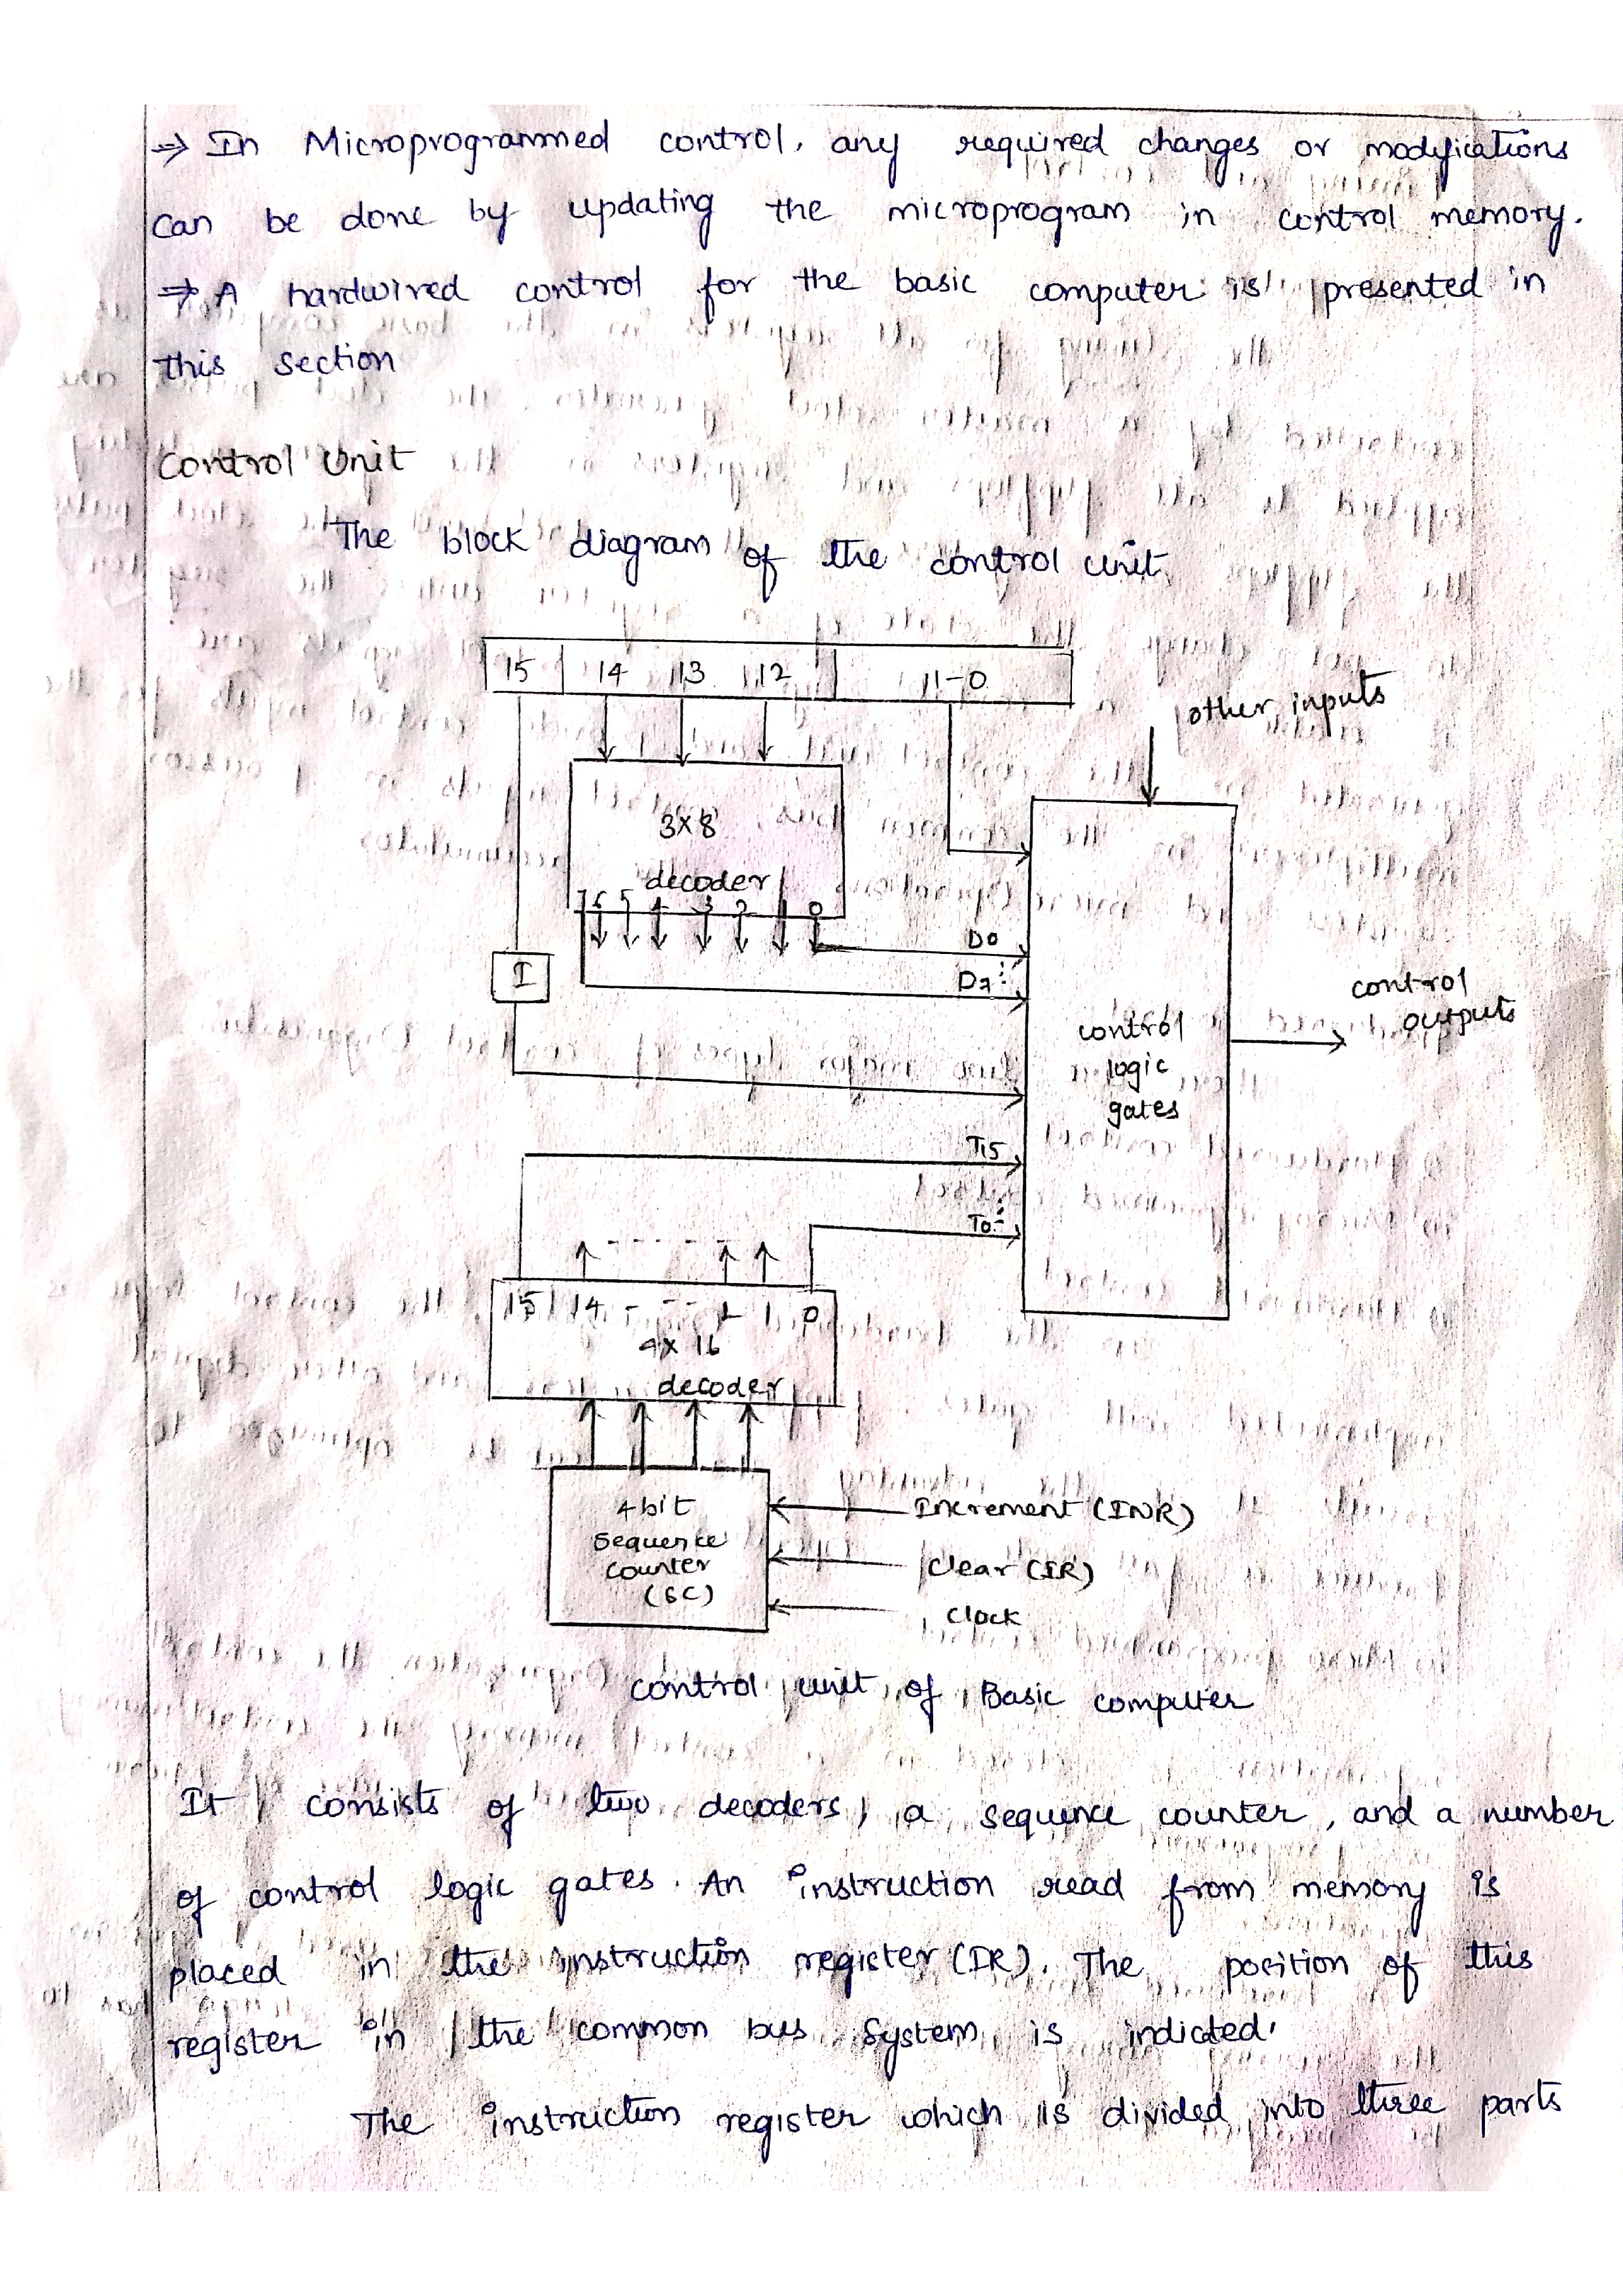 ⇒ In Microprogrammed control, any required changes or modifications
can be done by updating the microprogram in control memory.
⇒ A hardwired control for the basic computer is presented in
this section
Control Unit
The block diagram of the control unit
15 14 13 12 11-0
other inputs
3x8
decoder
7 6 5 4 3 2 1 0
D0
D7
I
control
logic
gates
control
outputs
T15
T0
15 14 - - - 2 1 0
4x16
decoder
4 bit
sequence
counter
(SC)
Increment (INR)
Clear
Clock
control unit of Basic computer
It consists of two decoders, a sequence counter, and a number
of control logic gates. An instruction read from memory is
placed in the instruction register (IR). The position of this
register in the common bus system is indicted.
The instruction register which is divided into three parts